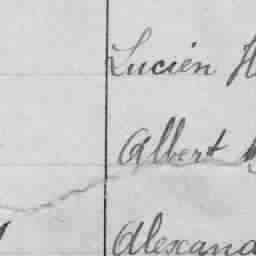 Lucien H
Albert
Alexand